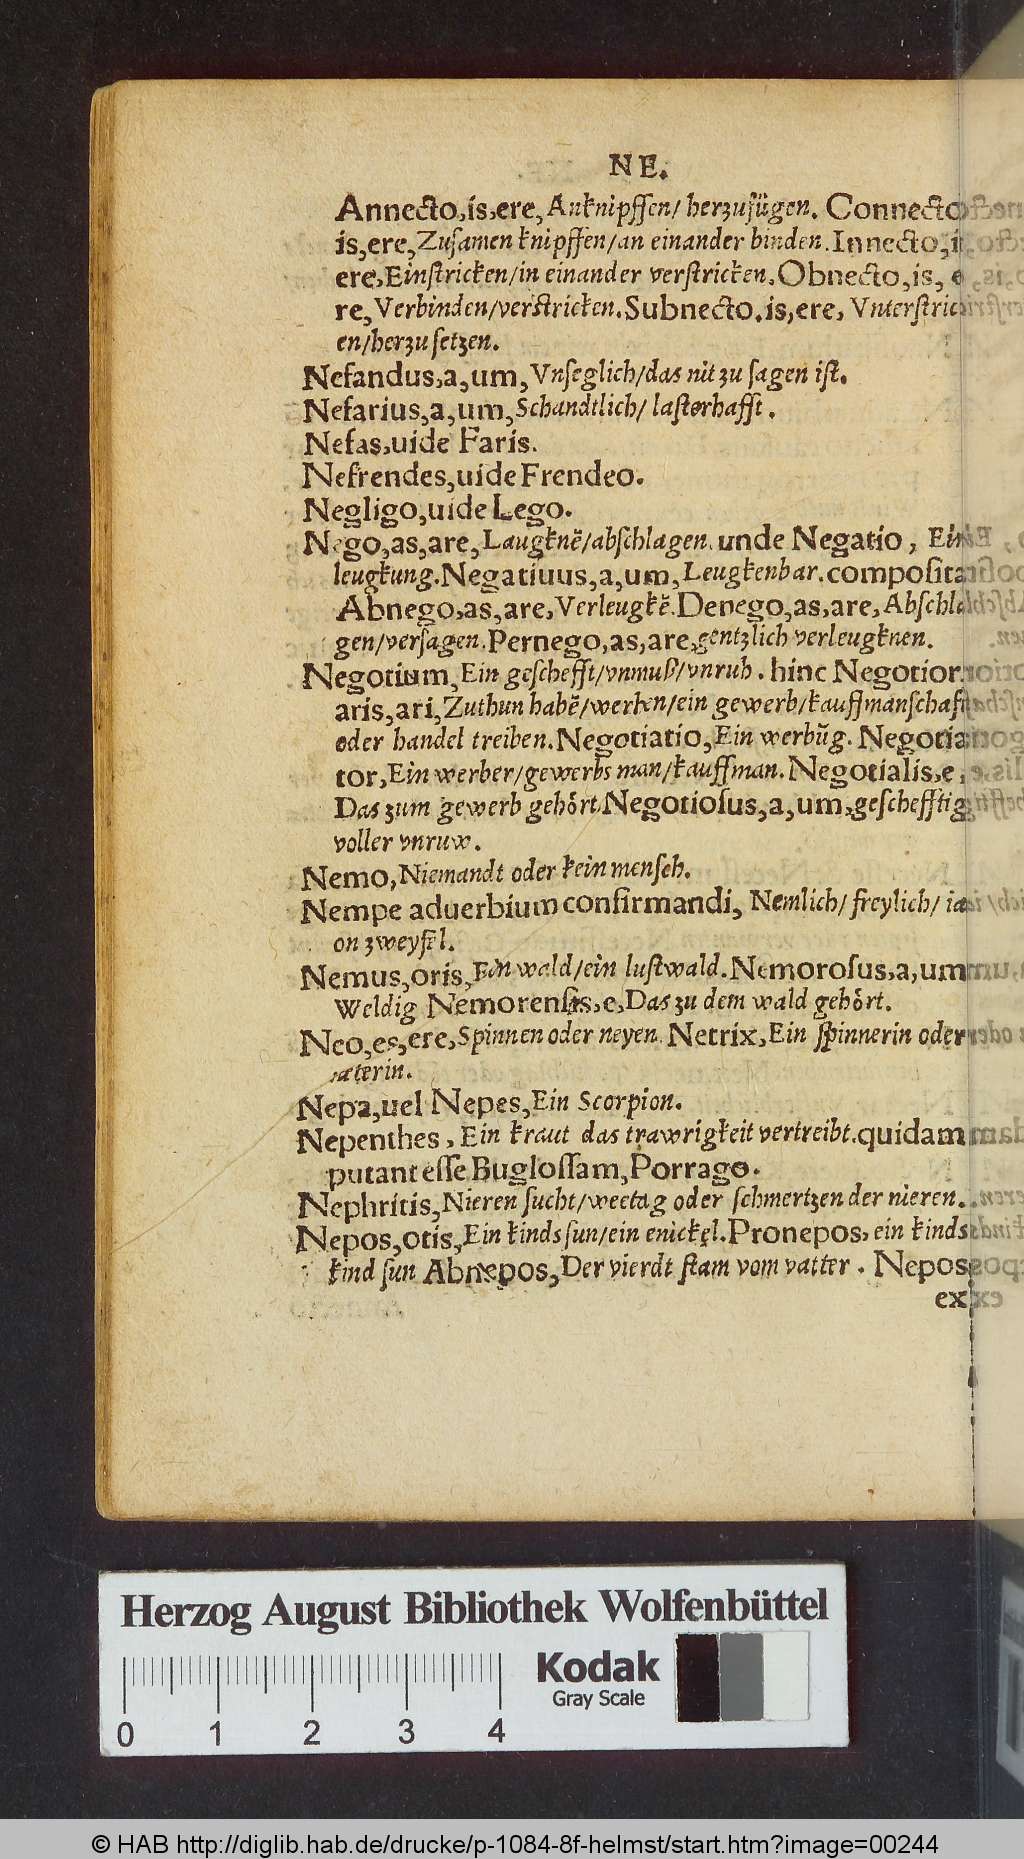 NE.
Annecto,is,ere, Anknipffen/ herzufügen. Connecto
is,ere, Zusamen knipffen/an einander binden. Innecto,i
ere, Einstricken/in einander verstricken. Obnecto,is, e
re, Verbinden/verstricken. Subnecto,is,ere, Vnterstric
en/herzu setzen.
Nefandus,a,um, Vnseglich/das nit zu sagen ist.
Nefarius,a,um, Schandtlich/ lasterhafft.
Nefas,uide Faris.
Nefrendes,uide Frendeo.
Negligo,uide Lego.
Nego,as,are, Laugknē/abschlagen. unde Negatio, Ein
leugkung. Negatiuus,a,um, Leugkenbar. composita
Abnego,as,are, Verleugkē. Denego,as,are, Abschla
gen/versagen. Pernego,as,are, gentzlich verleugknen.
Negotium, Ein geschefft/vnmuß/vnruh. hinc Negotior
aris,ari, Zuthun habē/werben/ein gewerb/kauffmanschafft
oder handel treiben. Negotiatio, Ein werbūg. Negotia
tor, Ein werber/gewerbs man/kauffman. Negotialis,e,
Das zum gewerb gehört. Negotiosus,a,um, geschefftig
voller vnruw.
Nemo, Niemandt oder kein mensch.
Nempe aduerbium confirmandi, Nemlich/ freylich/ ia
on zweyfel.
Nemus,oris, Ein wald/ein lustwald. Nemorosus,a,um
Weldig Nemorensis,e, Das zu dem wald gehört.
Neo,es,ere, Spinnen oder neyen. Netrix, Ein spinnerin oder
næterin.
Nepa,uel Nepes, Ein Scorpion.
Nepenthes, Ein kraut das trawrigkeit vertreibt. quidam
putant esse Buglossam, Porrago.
Nephritis, Nieren sucht/weetag oder schmertzen der nieren.
Nepos,otis, Ein kinds sun/ein enickel. Pronepos, ein kinds
kind sun Abnepos, Der vierdt stam vom vatter. Nepos
ex
Herzog August Bibliothek Wolfenbüttel
Kodak
Gray Scale
0 1 2 3 4
© HAB http://diglib.hab.de/drucke/p-1084-8f-helmst/start.htm?image=00244